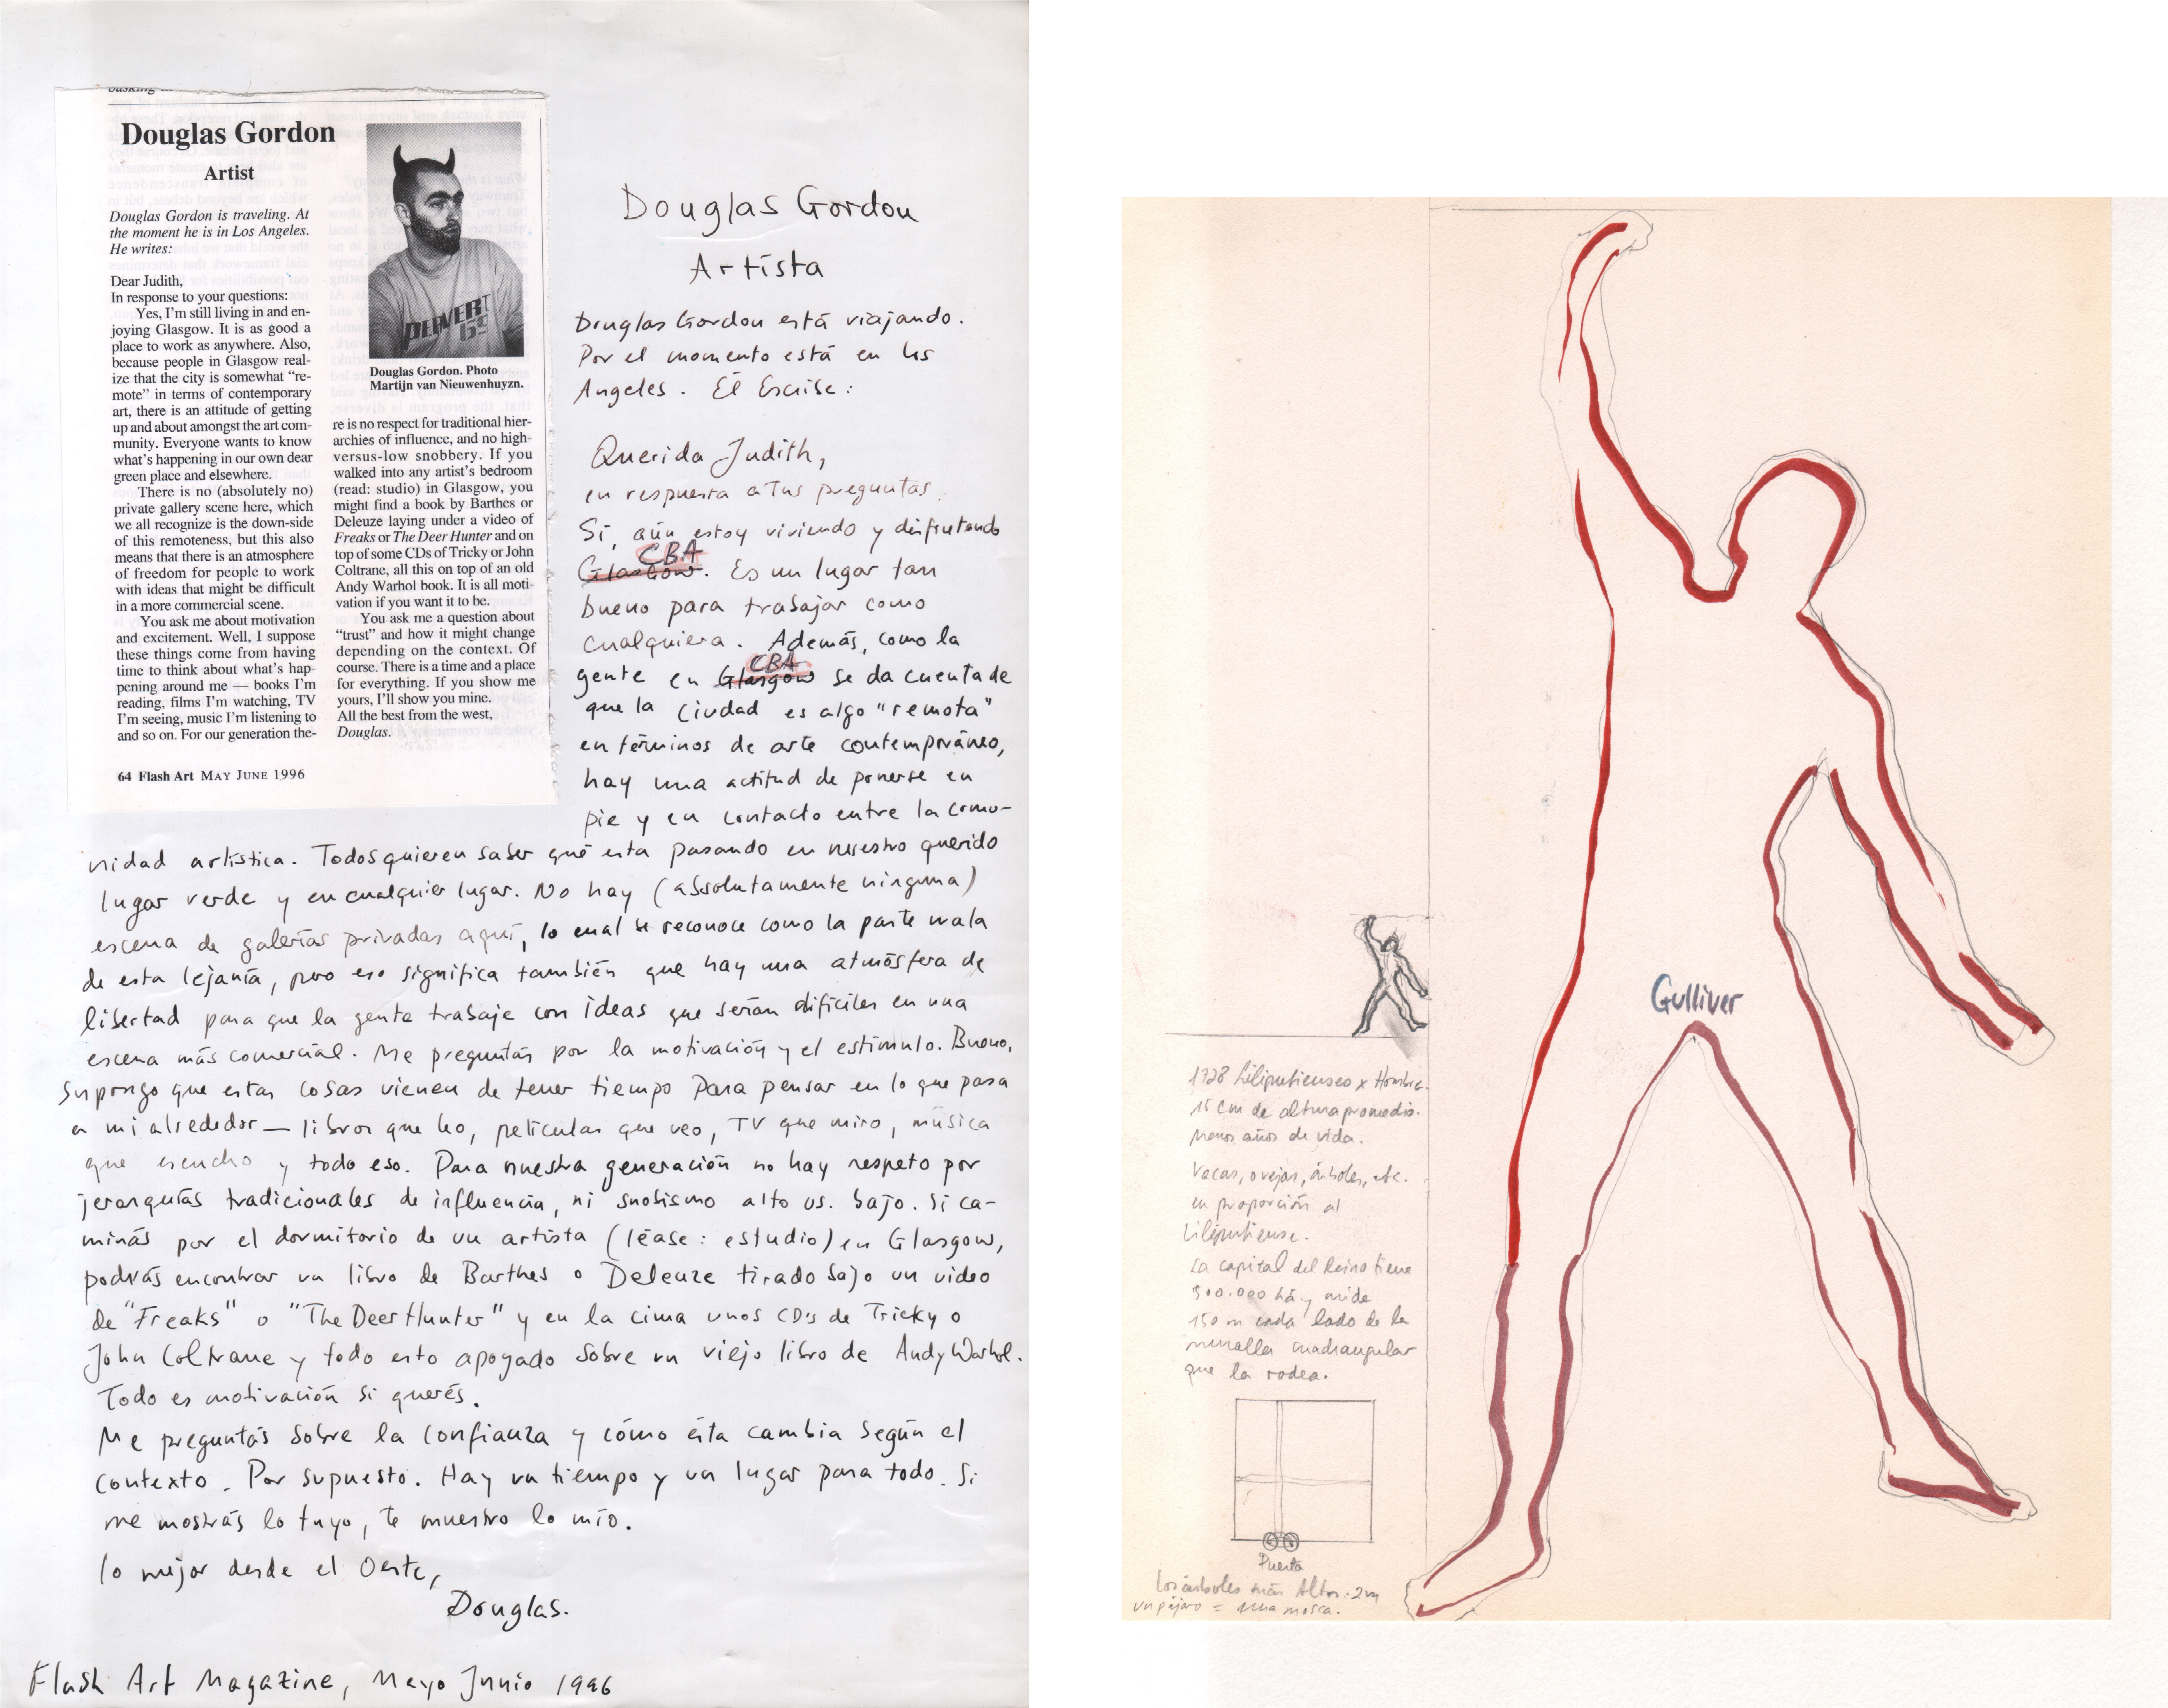 Douglas Gordon
Artist
Douglas Gordon is traveling. At
the moment he is in Los Angeles.
He writes:
Dear Judith,
In response to your questions:
Yes, I'm still living in and en-
joying Glasgow. It is as good a
place to work as anywhere. Also,
because people in Glasgow real-
ize that the city is somewhat "re-
mote" in terms of contemporary
art, there is an attitude of getting
up and about amongst the art com-
munity. Everyone wants to know
what's happening in our own dear
green place and elsewhere.
There is no (absolutely no)
private gallery scene here, which
we all recognize is the down-side
of this remoteness, but this also
means that there is an atmosphere
of freedom for people to work
with ideas that might be difficult
in a more commercial scene.
You ask me about motivation
and excitement. Well, I suppose
these things come from having
time to think about what's hap-
pening around me — books I'm
reading, films I'm watching, TV
I'm seeing, music I'm listening to
and so on. For our generation the-
PERVERT
69
Douglas Gordon. Photo
Martijn van Nieuwenhuyzn.
re is no respect for traditional hier-
archies of influence, and no high-
versus-low snobbery. If you
walked into any artist's bedroom
(read: studio) in Glasgow, you
might find a book by Barthes or
Deleuze laying under a video of
Freaks or The Deer Hunter and on
top of some CDs of Tricky or John
Coltrane, all this on top of an old
Andy Warhol book. It is all moti-
vation if you want it to be.
You ask me a question about
"trust" and how it might change
depending on the context. Of
course. There is a time and a place
for everything. If you show me
yours, I'll show you mine.
All the best from the west,
Douglas.
64 Flash Art MAY JUNE 1996
Douglas Gordon
Artista
Douglas Gordon está viajando.
Por el momento está en los
Angeles. Él Escribe:
Querida Judith,
en respuesta a tus preguntas.
Sí, aún estoy viviendo y disfrutando
CBA
Glasgow. Es un lugar tan
bueno para trabajar como
cualquiera. Además, como la
CBA
gente en Glasgow se da cuenta de
que la ciudad es algo "remota"
en términos de arte contemporáneo,
hay una actitud de ponerse en
pie y en contacto entre la comu-
nidad artística. Todos quieren saber qué esta pasando en nuestro querido
lugar verde y en cualquier lugar. No hay (absolutamente ninguna)
escena de galerías privadas aquí, lo cual se reconoce como la parte mala
de esta lejanía, pero eso significa también que hay una atmósfera de
libertad para que la gente trabaje con ideas que serían difíciles en una
escena más comercial. Me preguntás por la motivación y el estímulo. Bueno,
supongo que estas cosas vienen de tener tiempo para pensar en lo que pasa
a mi alrededor — libros que leo, películas que veo, TV que miro, música
que escucho y todo eso. Para nuestra generación no hay respeto por
jerarquías tradicionales de influencia, ni snobismo alto vs. bajo. Si ca-
minás por el dormitorio de un artista (léase: estudio) en Glasgow,
podrás encontrar un libro de Barthes o Deleuze tirado bajo un video
de "Freaks" o "The Deer Hunter" y en la cima unos CD's de Tricky o
John Coltrane y todo esto apoyado sobre un viejo libro de Andy Warhol.
Todo es motivación si querés.
Me preguntás sobre la confianza y cómo ésta cambia según el
contexto. Por supuesto. Hay un tiempo y un lugar para todo. Si
me mostrás lo tuyo, te muestro lo mío.
lo mejor desde el Oeste,
Douglas.
Flash Art Magazine, Mayo Junio 1996
Gulliver
1728 Liliputienses x Hombre.
15 cm de altura promedio.
Menos años de vida.
Vacas, ovejas, árboles, etc.
en proporción al
Liliputiense.
La capital del Reino tiene
500.000 há y mide
150 m cada lado de la
muralla cuadrangular
que la rodea.
Puerta
Los árboles más Altos: 2m
un pájaro = una mosca.